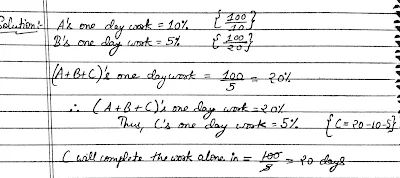 Solution:- A's one day work = 10% {100/10}
B's one day work = 5% {100/20}
(A+B+C)'s one day work = 100/5 = 20%
∴ (A+B+C)'s one day work = 20%
Thus, C's one day work = 5% {C=20-10-5}
C will complete the work alone in = 100/5 = 20 days